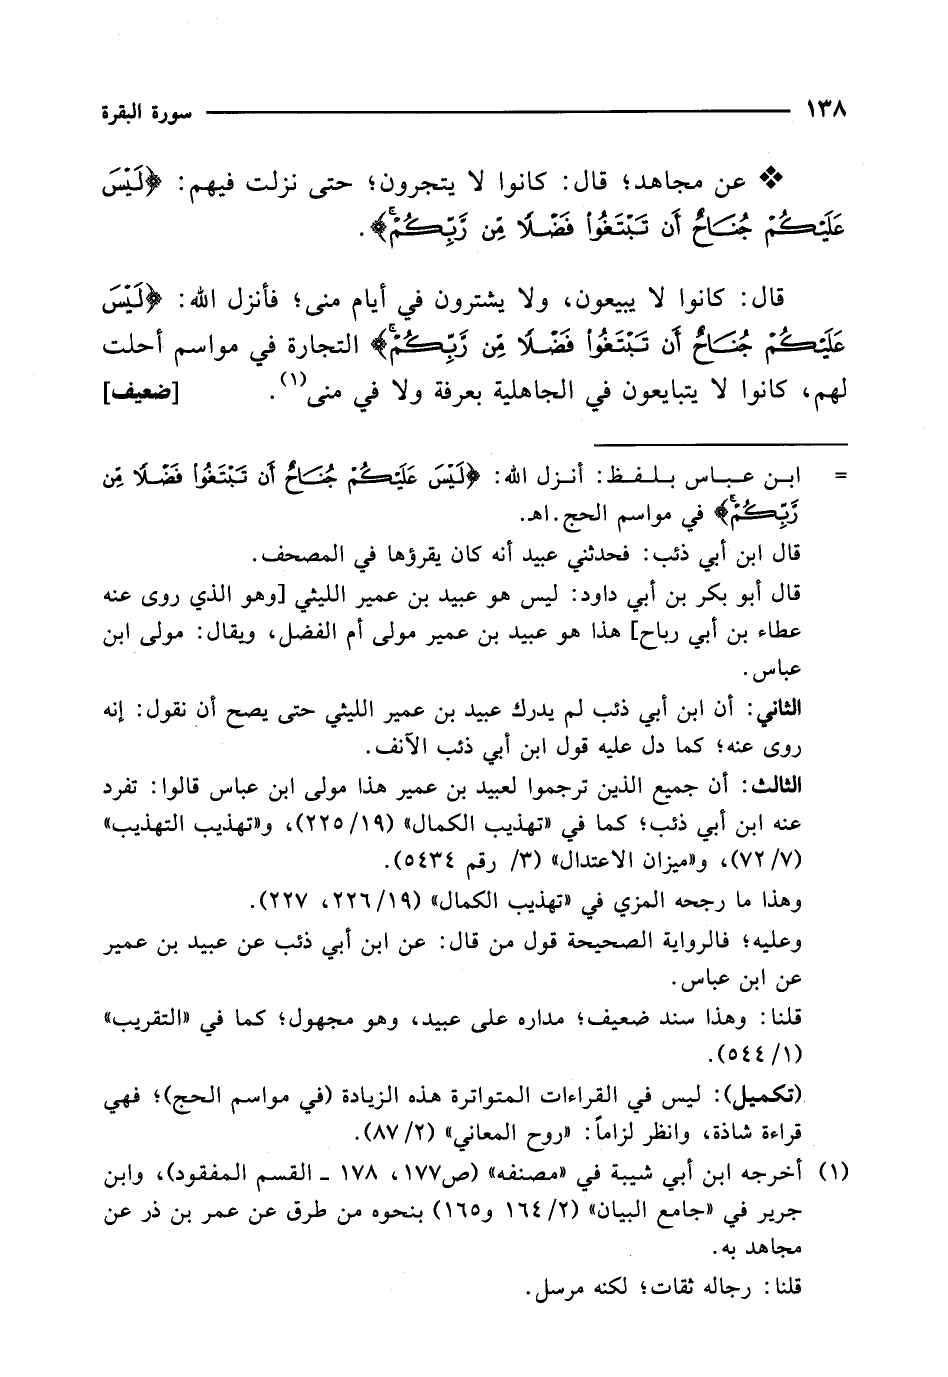 ١٣٨ سورة البقرة
❖ عن مجاهد؛ قال: كانوا لا يتجرون؛ حتى نزلت فيهم: ﴿لَيْسَ
عَلَيْكُمْ جُنَاحٌ أَن تَبْتَغُوا۟ فَضْلًا مِّن رَّبِّكُمْ ۚ﴾.
قال: كانوا لا يبيعون، ولا يشترون في أيام منى؛ فأنزل الله: ﴿لَيْسَ
عَلَيْكُمْ جُنَاحٌ أَن تَبْتَغُوا۟ فَضْلًا مِّن رَّبِّكُمْ ۚ﴾ التجارة في مواسم أحلت
لهم، كانوا لا يتبايعون في الجاهلية بعرفة ولا في منى(١). [ضعيف]
= ابن عباس بلفظ: أنزل الله: ﴿لَيْسَ عَلَيْكُمْ جُنَاحٌ أَن تَبْتَغُوا۟ فَضْلًا مِّن
رَّبِّكُمْ ۚ﴾ في مواسم الحج. اهـ.
قال ابن أبي ذئب: فحدثني عبيد أنه كان يقرؤها في المصحف.
قال أبو بكر بن أبي داود: ليس هو عبيد بن عمير الليثي [وهو الذي روى عنه
عطاء بن أبي رباح] هذا هو عبيد بن عمير مولى أم الفضل، ويقال: مولى ابن
عباس.
الثاني: أن ابن أبي ذئب لم يدرك عبيد بن عمير الليثي حتى يصح أن نقول: إنه
روى عنه؛ كما دل عليه قول ابن أبي ذئب الآنف.
الثالث: أن جميع الذين ترجموا لعبيد بن عمير هذا مولى ابن عباس قالوا: تفرد
عنه ابن أبي ذئب؛ كما في «تهذيب الكمال» (١٩/ ٢٢٥)، و«تهذيب التهذيب»
(٧/ ٧٢)، و«ميزان الاعتدال» (٣/ رقم ٥٤٣٤).
وهذا ما رجحه المزي في «تهذيب الكمال» (١٩/ ٢٢٦، ٢٢٧).
وعليه؛ فالرواية الصحيحة قول من قال: عن ابن أبي ذئب عن عبيد بن عمير
عن ابن عباس.
قلنا: وهذا سند ضعيف؛ مداره على عبيد، وهو مجهول؛ كما في «التقريب»
(١/ ٥٤٤).
(تكميل): ليس في القراءات المتواترة هذه الزيادة (في مواسم الحج)؛ فهي
قراءة شاذة، وانظر لزاماً: «روح المعاني» (٢/ ٨٧).
(١) أخرجه ابن أبي شيبة في «مصنفه» (ص١٧٧، ١٧٨ ـ القسم المفقود)، وابن
جرير في «جامع البيان» (٢/ ١٦٤ و١٦٥) بنحوه من طرق عن عمر بن ذر عن
مجاهد به.
قلنا: رجاله ثقات؛ لكنه مرسل.